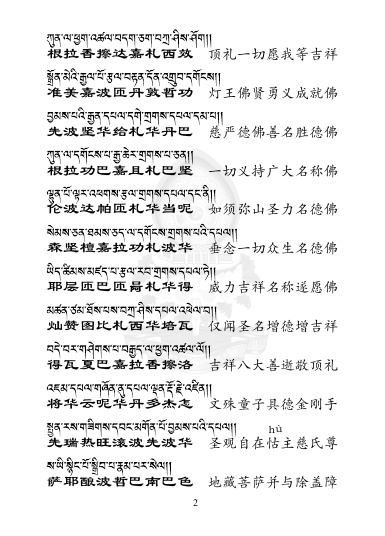 ཀུན་ལ་ཕྱག་འཚལ་བདག་ཅག་བཀྲ་ཤིས་ཤོག།
根拉香擦达嘉札西效 顶礼一切愿我等吉祥
སྒྲོན་མེའི་རྒྱལ་པོ་རྩལ་བརྟན་དོན་འགྲུབ་དགོངས།།
准美嘉波匝丹敦哲功 灯王佛贤勇义成就佛
བྱམས་པའི་རྒྱན་དཔལ་དགེ་གྲགས་དཔལ་དམ་པ།།
先波坚华给札华丹巴 慈严德佛善名胜德佛
ཀུན་ལ་དགོངས་པ་རྒྱ་ཆེར་གྲགས་པ་ཅན།།
根拉功巴嘉且札巴坚 一切义持广大名称佛
ལྷུན་པོ་ལྟར་འཕགས་རྩལ་གྲགས་དཔལ་དང་ནི།།
伦波达帕匝札华当呢 如须弥山圣力名德佛
སེམས་ཅན་ཐམས་ཅད་ལ་དགོངས་གྲགས་པའི་དཔལ།།
森坚檀嘉拉功札波华 垂念一切众生名德佛
ཡིད་ཚིམས་མཛད་པ་རྩལ་རབ་གྲགས་དཔལ་ཏེ།།
耶层匝巴匝局札华得 威力吉祥名称遂愿佛
མཚན་ཙམ་ཐོས་པས་བཀྲ་ཤིས་དཔལ་འཕེལ་བ།།
灿赞图比札西华培瓦 仅闻圣名增德增吉祥
བདེ་བར་གཤེགས་པ་བརྒྱད་ལ་ཕྱག་འཚལ་ལོ།།
得瓦夏巴嘉拉香擦洛 吉祥八大善逝敬顶礼
འཇམ་དཔལ་གཞོན་ནུ་དཔལ་ལྡན་རྡོ་རྗེ་འཛིན།།
将华云呢华丹多杰怎 文殊童子具德金刚手
སྤྱན་རས་གཟིགས་དབང་མགོན་པོ་བྱམས་པའི་དཔལ།།
hù
先瑞热旺滚波先波华 圣观自在怙主慈氏尊
ས་ཡི་སྙིང་པོ་སྒྲིབ་པ་རྣམ་པར་སེལ།།
萨耶酿波哲巴南巴色 地藏菩萨并与除盖障
2